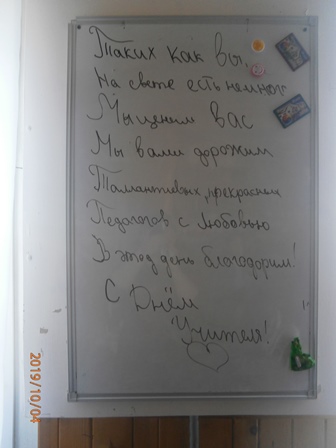 Таких как вы,
На свете есть немног
Мы ценим вас
Мы вами дорожим
Талантливых, прекрасных
Педагогов с любовью
В этод день благодорим!
С Днём
Учителя!
2019/10/04